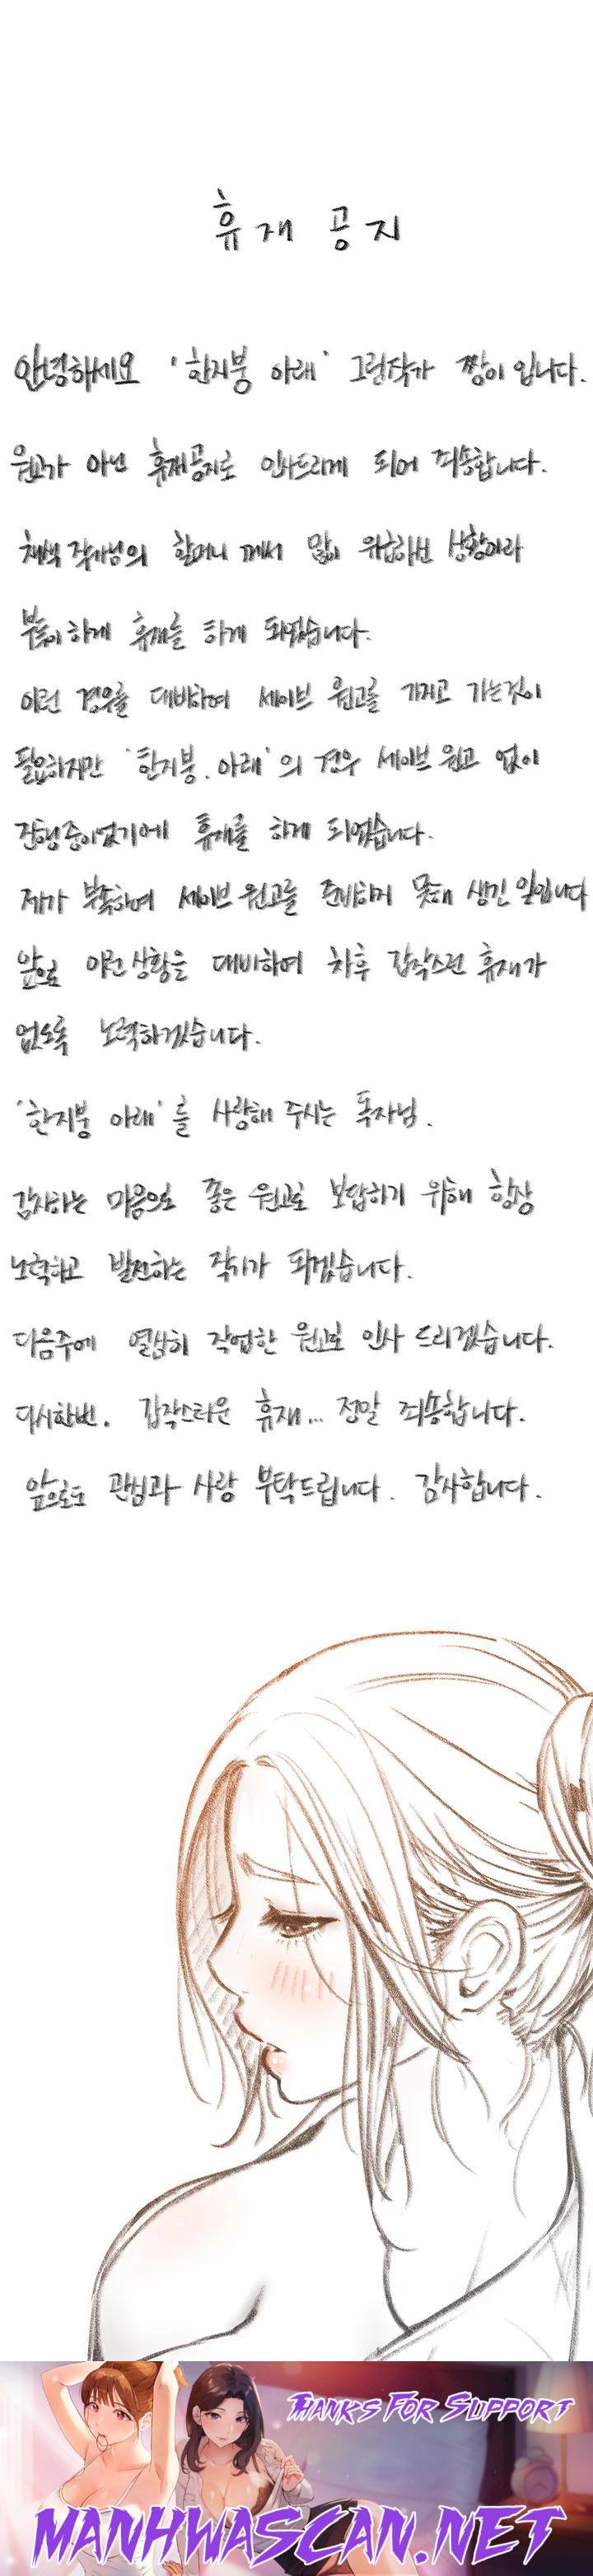 휴재 공지
안녕하세요 '한지붕 아래' 그림작가 짱이 입니다.
원고가 아닌 휴재공지로 인사드리게 되어 죄송합니다.
채색 작가님의 할머니 께서 많이 위급하신 상황이라
부득이 하게 휴재를 하게 되었습니다.
이런 경우를 대비하여 세이브 원고를 가지고 가는것이
필요하지만 '한지붕. 아래'의 경우 세이브 원고 없이
진행중이었기에 휴재를 하게 되었습니다.
제가 부족하여 세이브 원고를 준비하지 못해 생긴 일입니다
앞으로 이런 상황을 대비하여 차후 갑작스런 휴재가
없도록 노력하겠습니다.
'한지붕 아래'를 사랑해 주시는 독자님.
감사하는 마음으로 좋은 원고로 보답하기 위해 항상
노력하고 발전하는 작가가 되겠습니다.
다음주에 열심히 작업한 원고로 인사 드리겠습니다.
다시한번. 갑작스러운 휴재... 정말 죄송합니다.
앞으로도 관심과 사랑 부탁드립니다. 감사합니다.
THANKS FOR SUPPORT
MANHWASCAN.NET